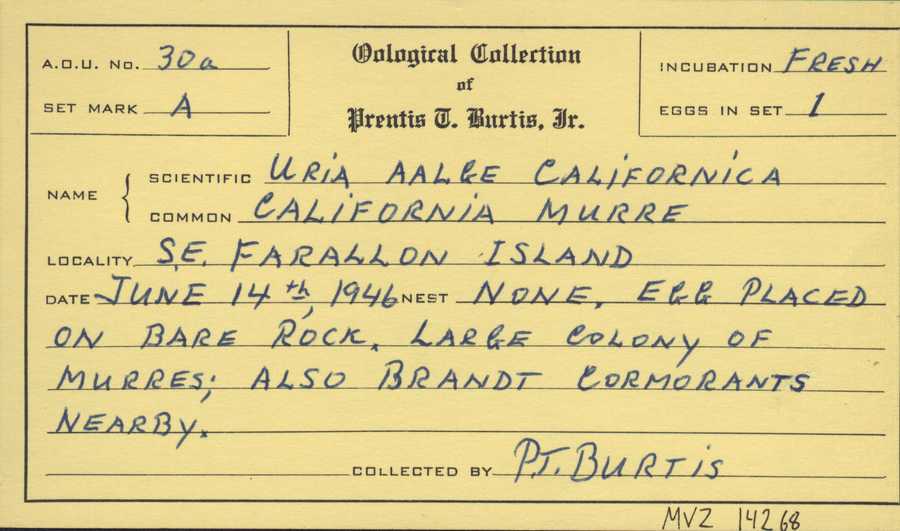 A.O.U. No. 30a
SET MARK A
Oological Collection
of
Prentis T. Burtis, Jr.
INCUBATION FRESH
EGGS IN SET 1
NAME
SCIENTIFIC URIA AALGE CALIFORNICA
COMMON CALIFORNIA MURRE
LOCALITY S.E. FARALLON ISLAND
DATE JUNE 14th, 1946 NEST NONE. EGG PLACED
ON BARE ROCK. LARGE COLONY OF
MURRES; ALSO BRANDT CORMORANTS
NEARBY.
COLLECTED BY P.T. BURTIS
MVZ 14268